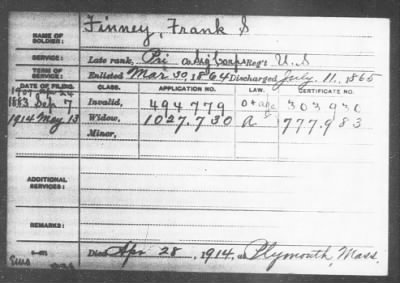 Finney, Frank S
NAME OF SOLDIER:
SERVICE: Late rank, Pri Co. Sig Corps Reg't U.S
TERM OF SERVICE: Enlisted Mar 30, 1864 Discharged July 11, 1865
DATE OF FILING. CLASS. APPLICATION NO. LAW. CERTIFICATE NO.
1883 Sep 7 Invalid, 494779 303930
1914 May 13 Widow, 1027.730 777.983
Minor,
ADDITIONAL SERVICES:
REMARKS:
Died Apr 28, 1914, at Plymouth, Mass.